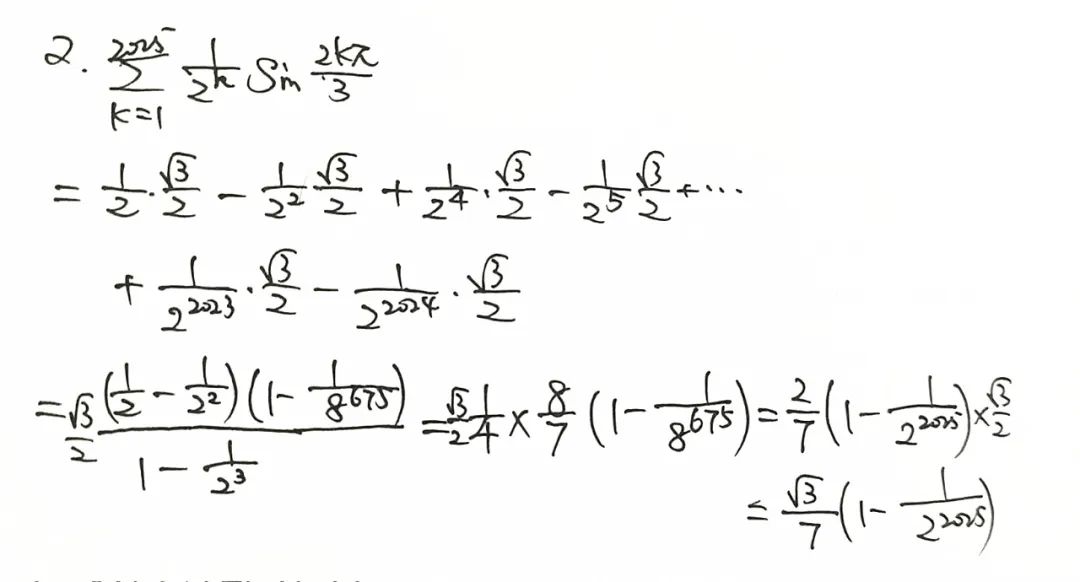 2. \sum_{k=1}^{2025} \frac{1}{2^k} Sin \frac{2kπ}{3}
= \frac{1}{2}·\frac{√3}{2} - \frac{1}{2^2}\frac{√3}{2} + \frac{1}{2^4}·\frac{√3}{2} - \frac{1}{2^5}\frac{√3}{2} + ···
+ \frac{1}{2^{2023}}·\frac{√3}{2} - \frac{1}{2^{2024}}·\frac{√3}{2}
= \frac{√3}{2} \frac{(\frac{1}{2} - \frac{1}{2^2})(1 - \frac{1}{8^{675}})}{1 - \frac{1}{2^3}} = \frac{√3}{2}\frac{1}{4} × \frac{8}{7} (1 - \frac{1}{8^{675}}) = \frac{2}{7}(1 - \frac{1}{2^{2025}}) × \frac{√3}{2}
= \frac{√3}{7}(1 - \frac{1}{2^{2025}})